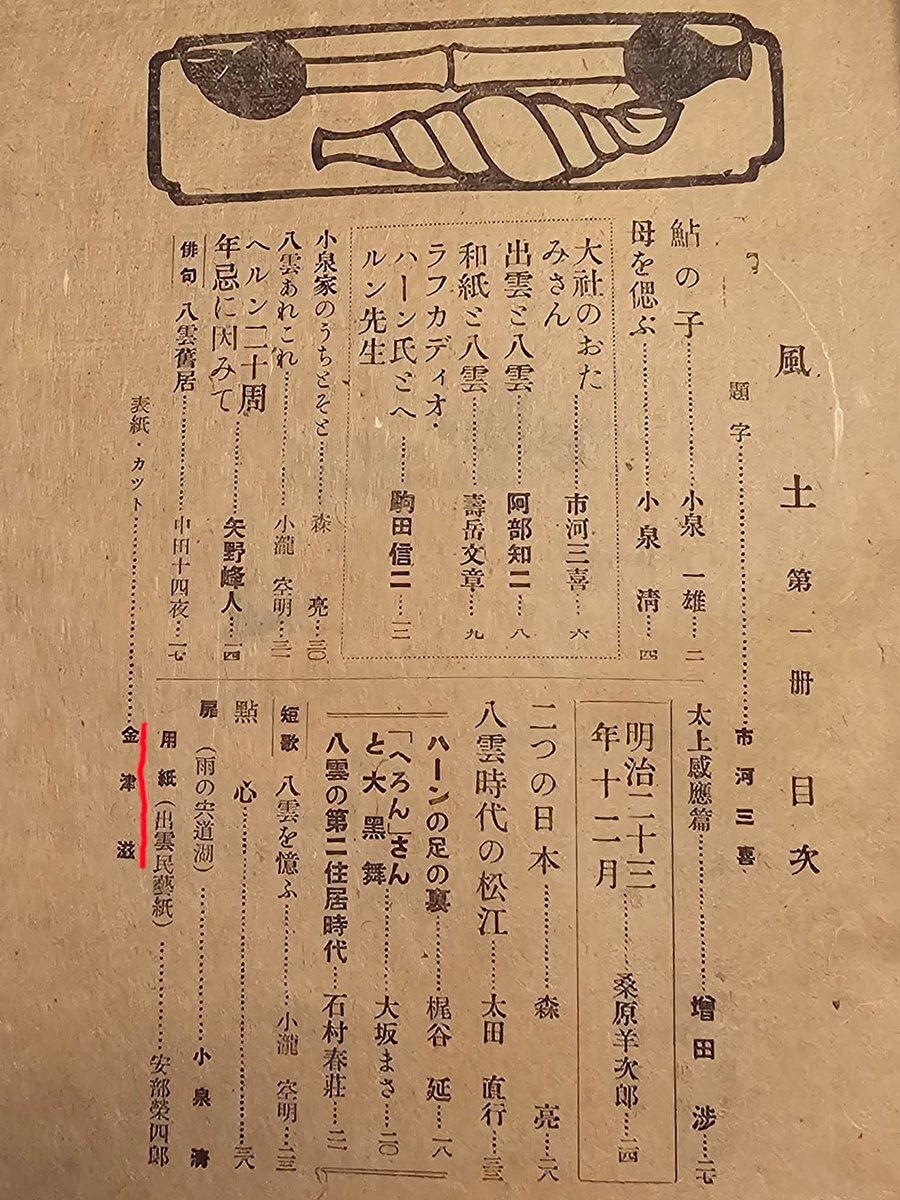 風土 第一册 目次
題字……市河三喜
鮎の子……小泉一雄…二
母を偲ぶ……小泉清…四
大社のおた
みさん……市河三喜…六
出雲と八雲……阿部知二…八
和紙と八雲……壽岳文章…九
ラフカディオ・
ハーン氏とヘ
ルン先生……駒田信二…一二
小泉家のうちとそと……森亮…三〇
八雲あれこれ……小瀧空明…三一
ヘルン二十周
年忌に因みて……矢野峰人…一四
俳句 八雲舊居……中田十四夜…一七
表紙・カット……金津滋
太上感應篇……增田涉…二七
明治二十三
年十二月……桑原羊次郎…二四
二つの日本……森亮…二八
八雲時代の松江……太田直行…三三
ハーンの足の裏……梶谷延…一八
「へろん」さん
と大黑舞……大坂まさ…二〇
八雲の第二住居時代…石村春莊…二二
短歌 八雲を憶ふ……小瀧空明…二三
點心……三八
扉(雨の宍道湖)……小泉清
用紙(出雲民藝紙)……安部榮四郎